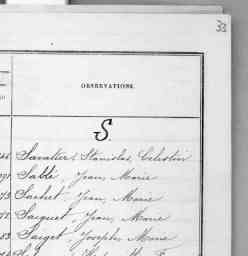 33
OBSERVATIONS.
S.
Savatier, Stanislas, Célestin
Sablé, Jean, Marie
Sachet, Jean, Marie
Saiquet, Jean, Marie
Saiget, Joseph, Marie